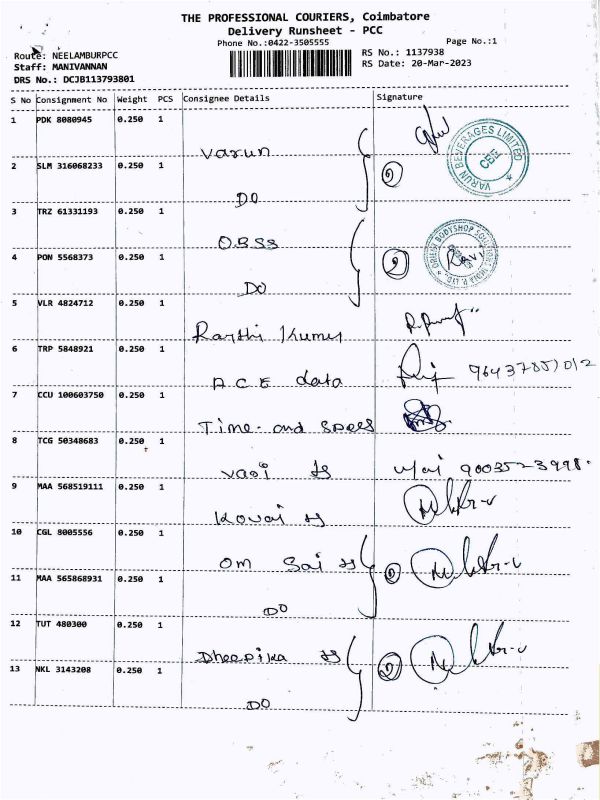 THE PROFESSIONAL COURIERS, Coimbatore
Delivery Runsheet - PCC
Phone No.:0422-3505555
Page No.:1
Route: NEELAMBURPCC
Staff: MANIVANNAN
DRS No.: DCJB113793801
RS No.: 1137938
RS Date: 20-Mar-2023
S No Consignment No Weight PCS Consignee Details Signature
1 PDK 8080945 0.250 1 Varun
VARUN BEVERAGES LIMITED
CBE
2 SLM 316068233 0.250 1 DO ②
3 TRZ 61331193 0.250 1 O.B.S.S
4 PON 5568373 0.250 1 DO ② Ravi
5 VLR 4824712 0.250 1 Kumar
6 TRP 5848921 0.250 1 ACE data
7 CCU 100603750 0.250 1 Time and
8 TCG 50348683 0.250 1 Vasi
9 MAA 568519111 0.250 1 Kovai
10 CGL 8005556 0.250 1 Om Sai
11 MAA 565868931 0.250 1 DO
12 TUT 480300 0.250 1 Dheepika
13 NKL 3143208 0.250 1 DO ②